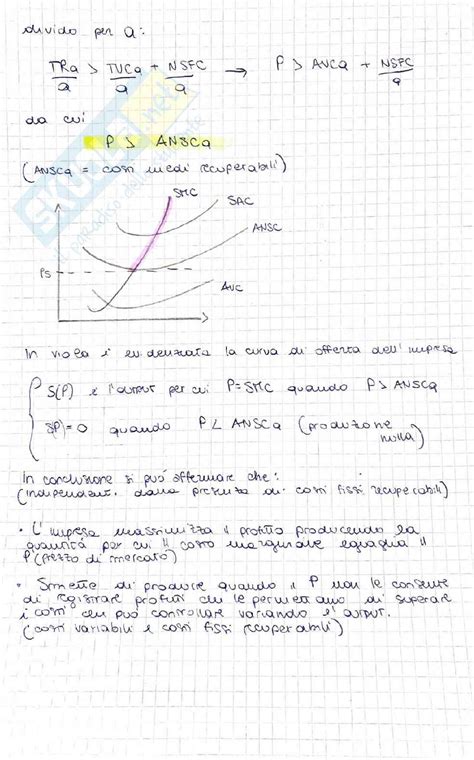 divido per q:
TRq/q > TVCq/q + NSFC/q → P > AVCq + NSFC/q
da cui
P > ANSCq
(ANSCq = costi medi recuperabili)
SMC
SAC
ANSC
Ps
AVC
In viola è evidenziata la curva di offerta dell'impresa
S(P) è l'output per cui P=SMC quando P > ANSCq
S(P)=0 quando P < ANSCq (produzione nulla)
In conclusione si può affermare che:
(indipendent. dalla presenza di costi fissi recuperabili)
• L'impresa massimizza il profitto producendo la
quantità per cui il costo marginale eguaglia il
P (prezzo di mercato)
• Smette di produrre quando il P non le consente
di registrare profitti che le permettano di superare
i costi che può controllare variando l'output.
(costi variabili e costi fissi recuperabili)